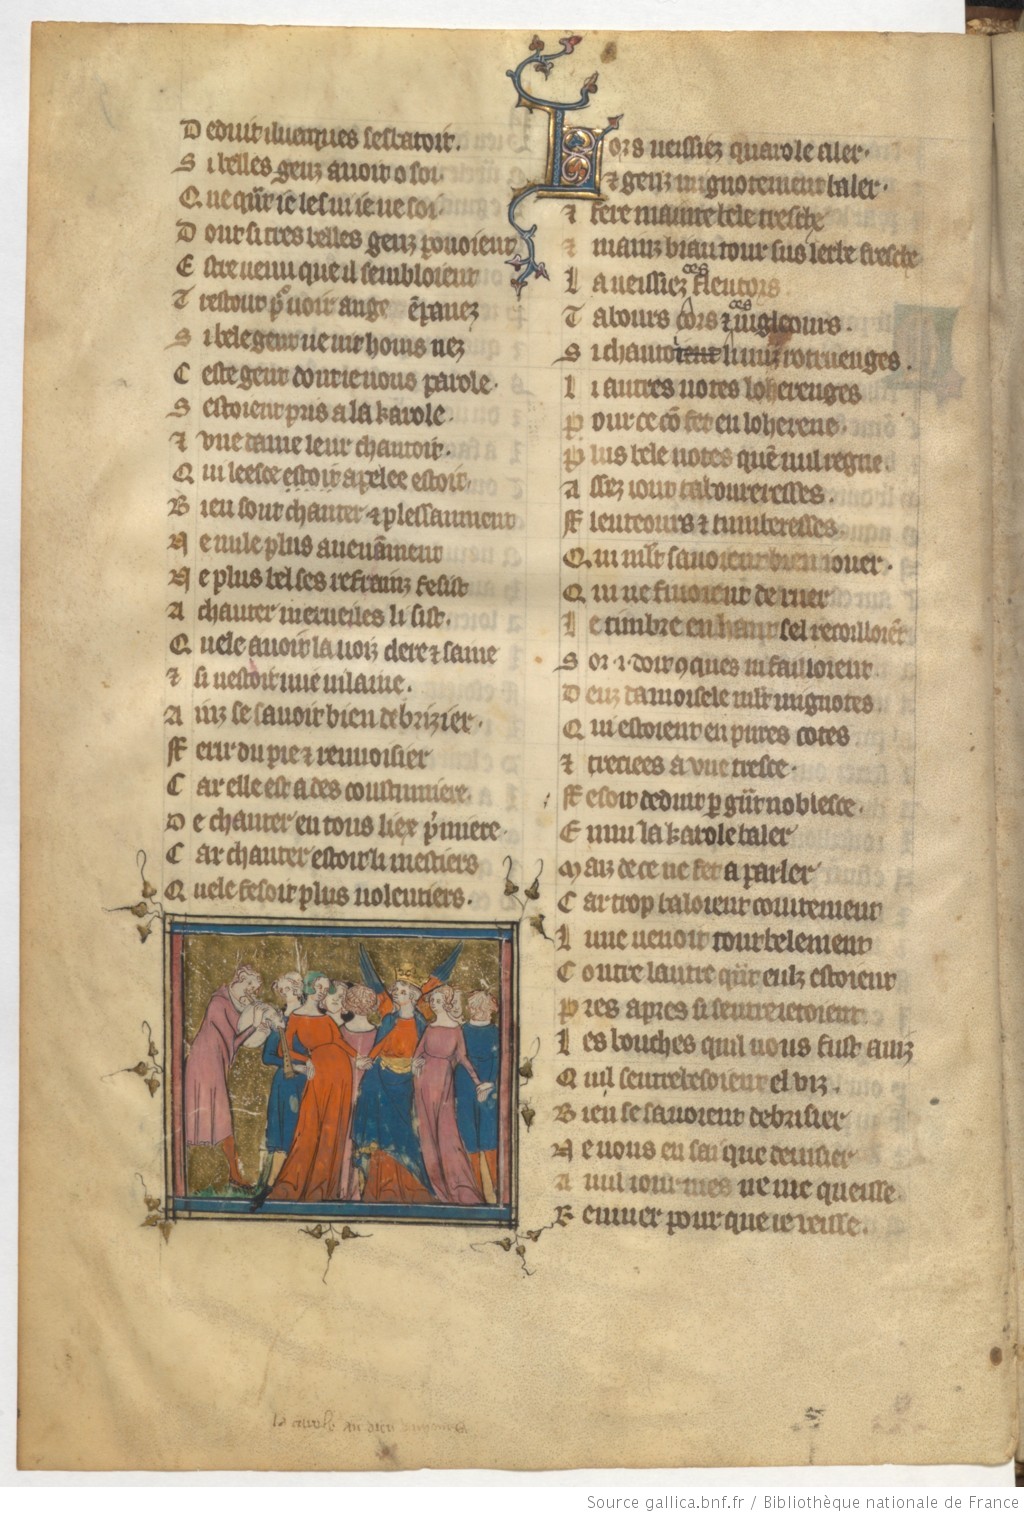 Deduit iluecques sesbatoit.
Si belles genz avoit o soi
Que quant ie les vi ie ne soi
Dont si tres belles genz pouoient
Estre venu que il sembloient
Trestout pour voir ange empanez
Si bele gent ne vit homs nez
Ceste gent dont ie vous parole.
Sestoient pris a la karole.
⁊ vne dame leur chantoit.
Qui leesce estoit apelee estoit.
Bien sout chanter ⁊ plessaument
Ne nule plus avenāment
Ne plus bel ses refrainz fesist
A chanter merueilles li sist.
Quele avoit la voiz clere ⁊ saine
⁊ si nestoit mie vilaine.
Ainz se savoit bien debrizier.
Ferir du pie ⁊ renvoisier
Car elle est ades coustumiere.
De chanter en tous liex p̃miere.
Car chanter estoit li mestiers
Quele fesoit plus volentiers.
Lors veissiez quarole aler.
⁊ genz mignotement baler.
⁊ fere mainte bele tresche
⁊ mainz biau tour sus lerbe fresche
La veissiez fleutors
Tabours cors ⁊ iugleours.
Si chantoient li uns rotruenges.
Li autres notes loherenges
Pour ce cō fet en loherene.
Plus bele notes quē nul regne.
Assez iout taboureresses.
Fleuteours ⁊ timberesses.
Qui mlt savoient bien iouer.
Qui ne finoient de ruer
Le timbre en haut sel recoilloiēt
Sor .i. doit 9ques ni failloient.
Deuz damoisele mlt mignotes.
Qui estoient en pures cotes
⁊ treciees a vne tresce.
Fesoit deduit p grāt noblesce.
Enmi la karole baler
Maiz de ce ne fet a parler
Car trop baloient cointement
Lune venoit tout belement
Contre lautre quāt eulz estoient
Pres apres si sentreietoient
Les bouches quil vous fust auiz
Quil sentrebesoient el viz.
Bien se savoient debrisier
Ne vous en sai que deuisier
A nul iour mes ne me queisse.
Remuer pour que ie veisse.
la carole du dieu damours
Source gallica.bnf.fr / Bibliothèque nationale de France